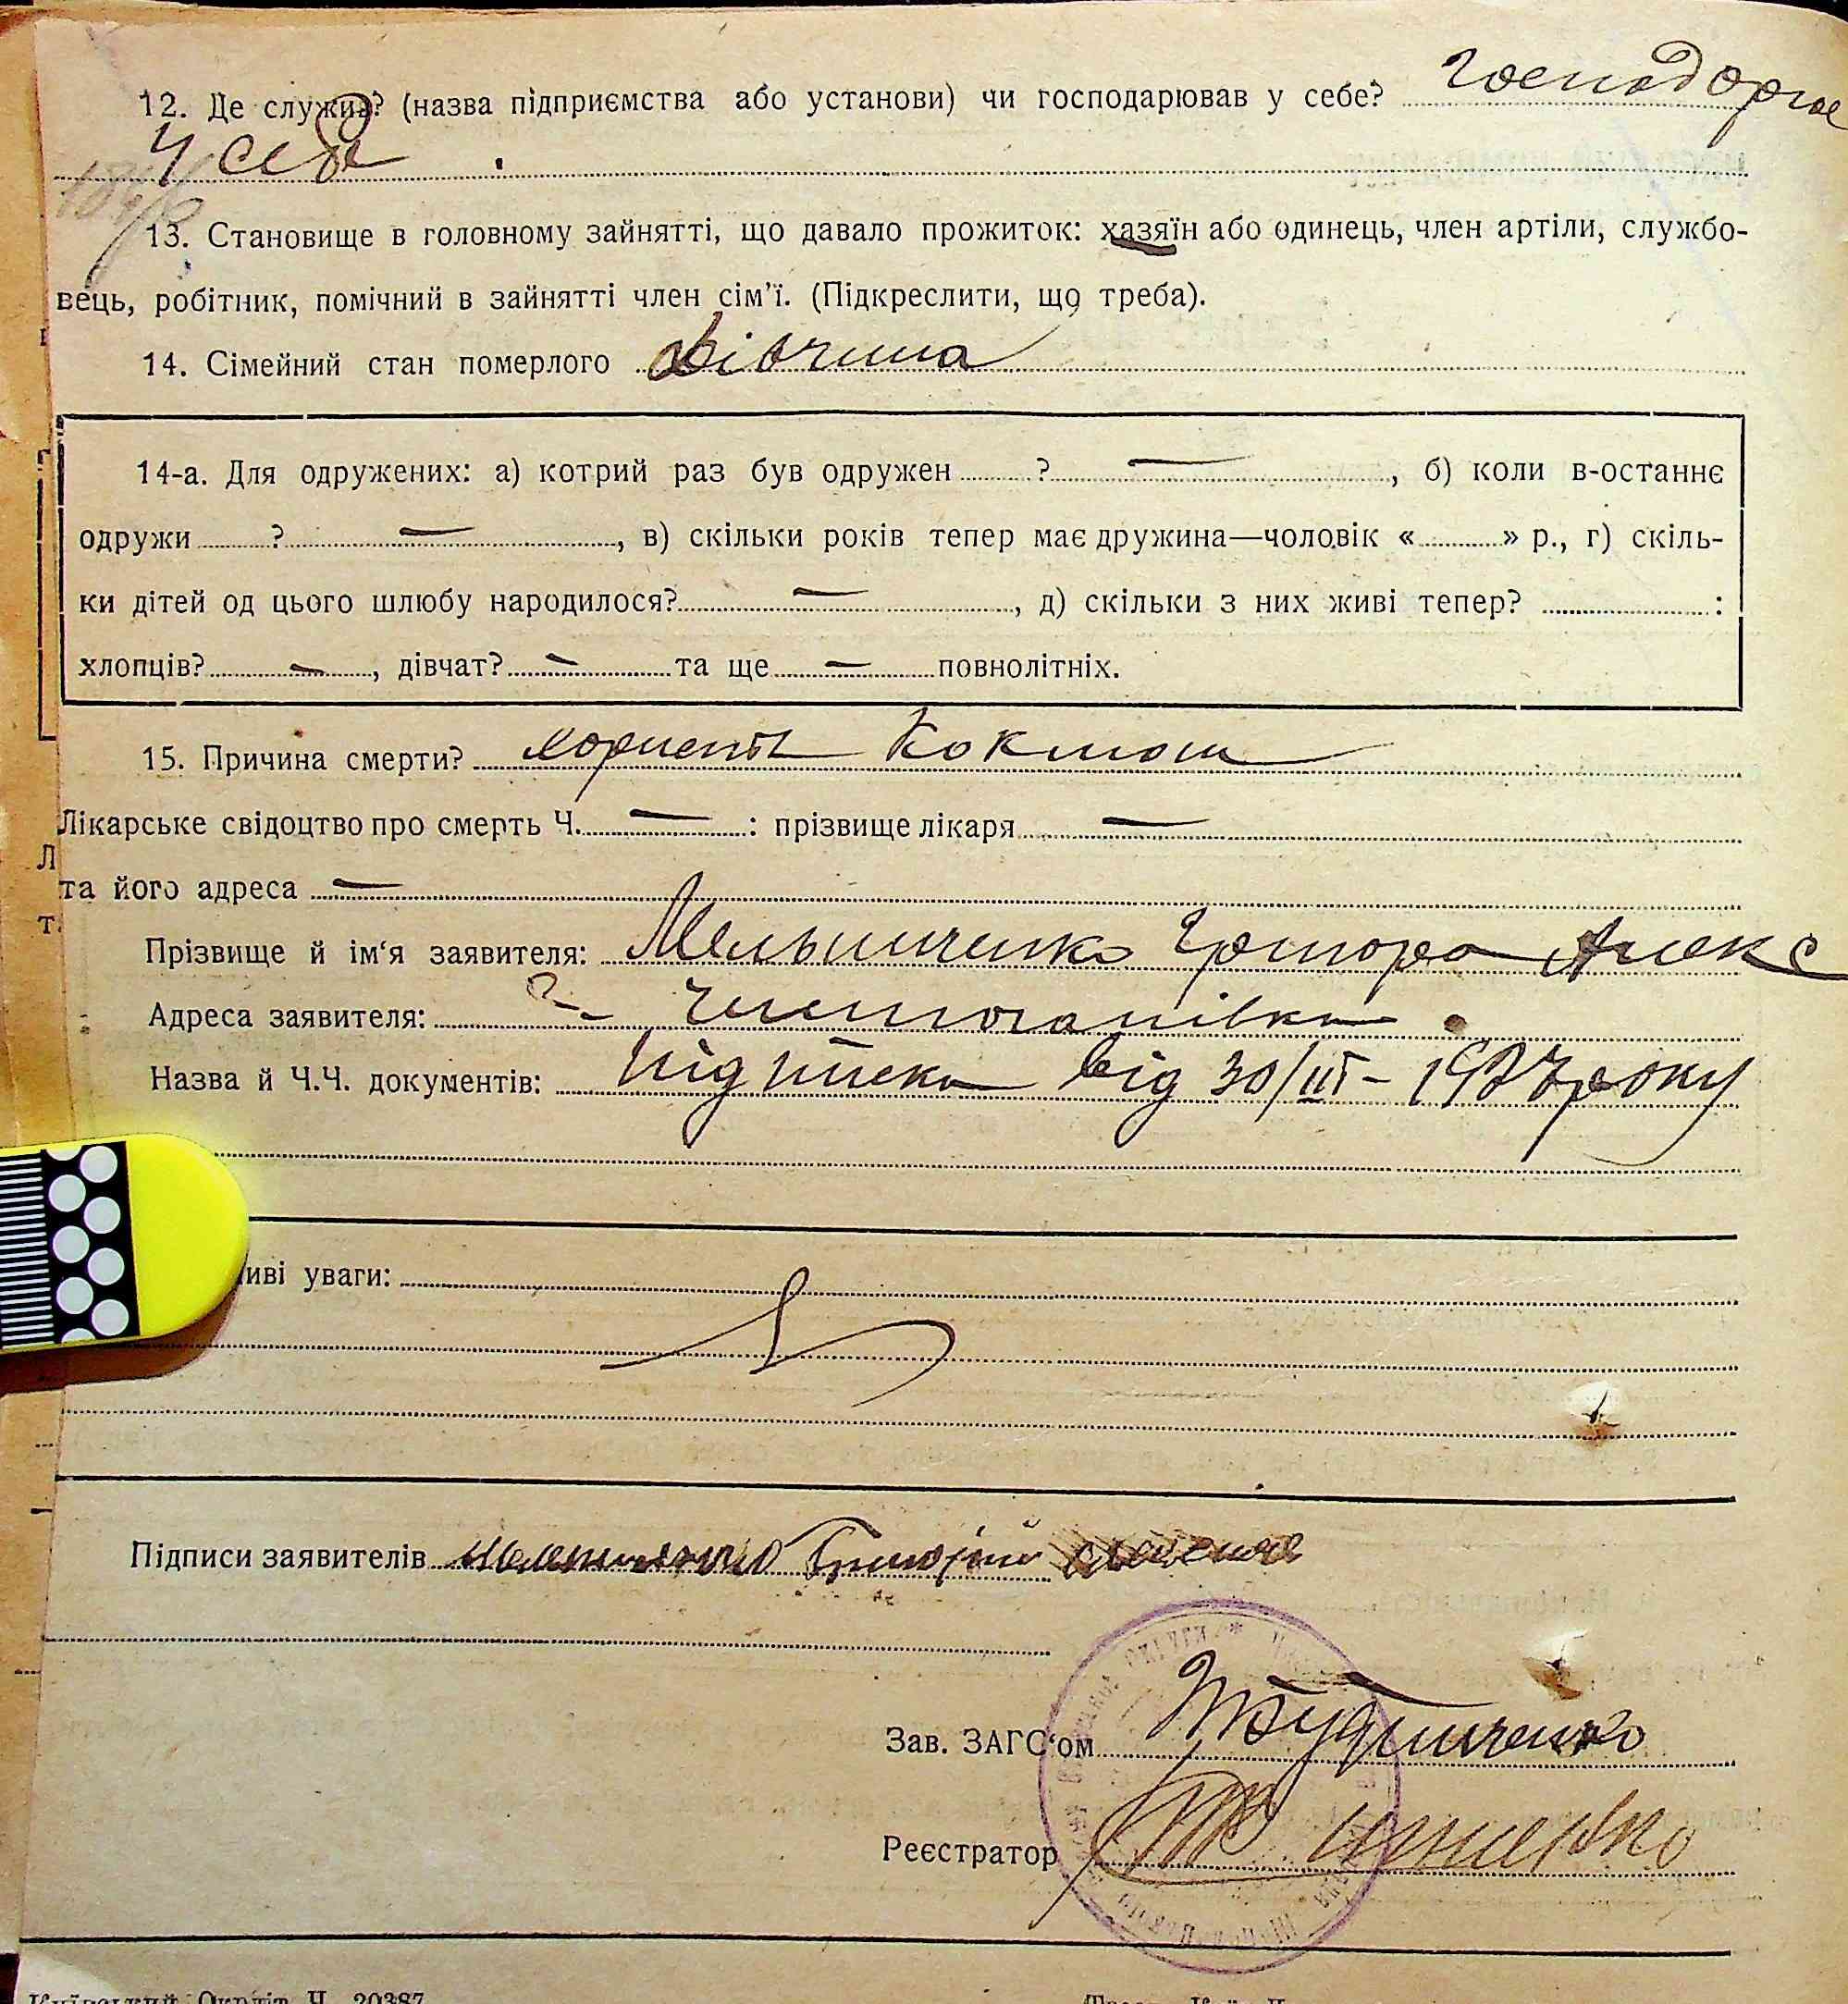 12. Де служив? (назва підприємства або установи) чи господарював у себе? господарює
У себе
13. Становище в головному зайнятті, що давало прожиток: хазяїн або одинець, член артіли, службо-
вець, робітник, помічний в зайнятті член сім’ї. (Підкреслити, що треба).
14. Сімейний стан померлого дівчина
14-а. Для одружених: а) котрий раз був одружен ? —, б) коли в-останнє
одружи ? —, в) скільки років тепер має дружина—чоловік « » р., г) скіль-
ки дітей од цього шлюбу народилося? —, д) скільки з них живі тепер? :
хлопців? —, дівчат? — та ще — повнолітніх.
15. Причина смерти? Коклюш
Лікарське свідоцтво про смерть Ч. — : прізвище лікаря —
та його адреса —
Прізвище й ім‘я заявителя: Мельниченко Алекс
Адреса заявителя:
Назва й Ч.Ч. документів: підписка від 30/III – 1927 року
иві уваги:
Підписи заявителів Григорій
Зав. ЗАГС‘ом
Реєстратор
Київський Окрліт Ч. 20387